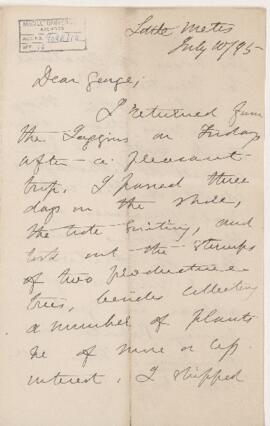 McGILL UNIVERSITY
ARCHIVES
ACC. NO.
REF.
Little Metis
July 10/95
Dear George;
I returned from
the Joggins on Friday
after a pleasant
trip. I passed three
days on the shore,
the tide suiting, and
took out the stumps
of two productive
trees, besides collecting
a number of plants
&c of more or less
interest. I shipped